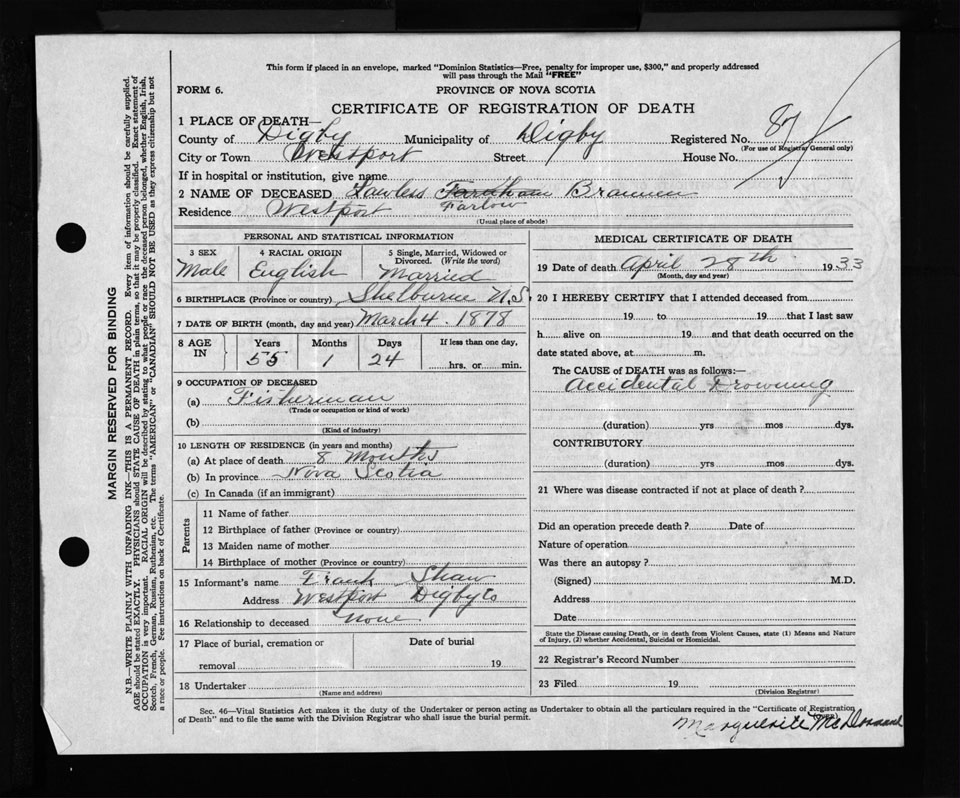 This form if placed in an envelope, marked "Dominion Statistics—Free, penalty for improper use, $300," and properly addressed
will pass through the Mail "FREE"
FORM 6.
PROVINCE OF NOVA SCOTIA
CERTIFICATE OF REGISTRATION OF DEATH
1 PLACE OF DEATH—
County of Digby Municipality of Digby Registered No. 87
(For use of Registrar General only)
City or Town Westport Street House No.
If in hospital or institution, give name
2 NAME OF DECEASED Lawless Brannen
Farlow
Residence Westport
(Usual place of abode)
PERSONAL AND STATISTICAL INFORMATION
3 SEX Male
4 RACIAL ORIGIN English
5 Single, Married, Widowed or
Divorced. (Write the word)
Married
6 BIRTHPLACE (Province or country) Shelburne N.S.
7 DATE OF BIRTH (month, day and year) March 4. 1878
8 AGE IN Years 55 Months 1 Days 24 If less than one day,
hrs. or min.
9 OCCUPATION OF DECEASED
(a) Fisherman
(Trade or occupation or kind of work)
(b)
(Kind of industry)
10 LENGTH OF RESIDENCE (in years and months)
(a) At place of death 8 Months
(b) In province Nova Scotia
(c) In Canada (if an immigrant)
Parents
11 Name of father
12 Birthplace of father (Province or country)
13 Maiden name of mother
14 Birthplace of mother (Province or country)
15 Informant's name Frank Shaw
Address Westport Digby Co
16 Relationship to deceased none
17 Place of burial, cremation or
removal
Date of burial
19
18 Undertaker
(Name and address)
MEDICAL CERTIFICATE OF DEATH
19 Date of death April 28th 1933
(Month, day and year)
20 I HEREBY CERTIFY that I attended deceased from
19 to 19 that I last saw
h alive on 19 and that death occurred on the
date stated above, at m.
The CAUSE of DEATH was as follows:—
Accidental Drowning
(duration) yrs mos dys.
CONTRIBUTORY
(duration) yrs mos dys.
21 Where was disease contracted if not at place of death?
Did an operation precede death? Date of
Nature of operation
Was there an autopsy?
(Signed) M.D.
Address
Date
State the Disease causing Death, or in death from Violent Causes, state (1) Means and Nature
of Injury, (2) whether Accidental, Suicidal or Homicidal.
22 Registrar's Record Number
23 Filed 19
(Division Registrar)
Sec. 46—Vital Statistics Act makes it the duty of the Undertaker or person acting as Undertaker to obtain all the particulars required in the "Certificate of Registration
of Death" and to file the same with the Division Registrar who shall issue the burial permit.
Marguerite McDormand
MARGIN RESERVED FOR BINDING
N.B.—WRITE PLAINLY WITH UNFADING INK—THIS IS A PERMANENT RECORD. Every item of information should be carefully supplied.
AGE should be stated EXACTLY. PHYSICIANS should STATE CAUSE OF DEATH in plain terms, so that it may be properly classified. Exact statement of
OCCUPATION is very important. RACIAL ORIGIN will be described by stating to what people or race the deceased person belonged, whether English, Irish,
Scotch, French, German, Russian, Ruthenian, etc. The terms "AMERICAN" or "CANADIAN" SHOULD NOT BE USED as they express citizenship but not
a race or people. See instructions on back of Certificate.